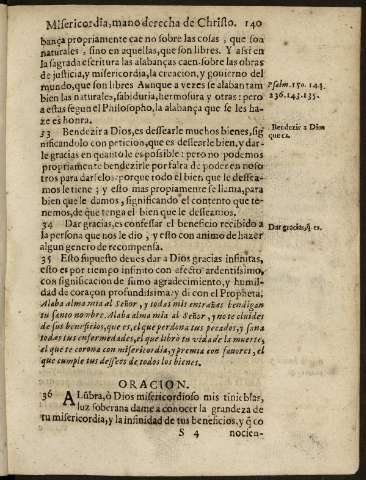 Misericordia, mano derecha de Christo. 140
bança propriamente cae no sobre las cosas, que son
naturales, sino en aquellas, que son libres. Y assi en
la sagrada escritura las alabanças caen sobre las obras
de justicia, y misericordia, la creacion, y gouierno del
mundo, que son libres Aunque a vezes se alaban tam
bien las naturales, sabiduria, hermosura y otras: pero
a estas segun el Philosopho, la alabança que se les ha-
ze es honra.
Psalm. 150. 144.
236. 143. 135.
33 Bendezir a Dios, es dessearle muchos bienes, sig
nificandolo con peticion, que es dessearle bien, y dar-
le gracias en quanto le es possible: pero no podemos
propriamente bendezirle por falta de poder en noso
tros para darselo: porque todo el bien que le dessea-
mos le tiene; y esto mas propriamente se llama, para
bien que le damos, significando el contento que te-
nemos, de que tenga el bien que le desseamos.
Bendezir a Dios
que es.
34 Dar gracias, es confessar el beneficio recibido a
la persona que nos le dio, y esto con animo de hazer
algun genero de recompensa.
Dar gracias, q̃ es.
35 Esto supuesto deues dar a Dios gracias infinitas,
esto es por tiempo infinito con afecto ardentissimo,
con significacion de sumo agradecimiento, y humil-
dad de coraçon profundissima: y di con el Propheta,
Alaba alma mia al Señor, y todas mis entrañas bendigan
su santo nombre. Alaba alma mia al Señor, y no te oluides
de sus beneficios, que es, el que perdona tus pecados, y sana
todas tus enfermedades, el que librò tu vida de la muerte,
el que te corona con misericordia, y premia con fauores, el
que cumple tus desseos de todos los bienes.
ORACION.
36 ALũbra, ò Dios misericordioso mis tinieblas,
luz soberana dame a conocer la grandeza de
tu misericordia, y la infinidad de tus beneficios, y q̃ co
S 4 nocien-